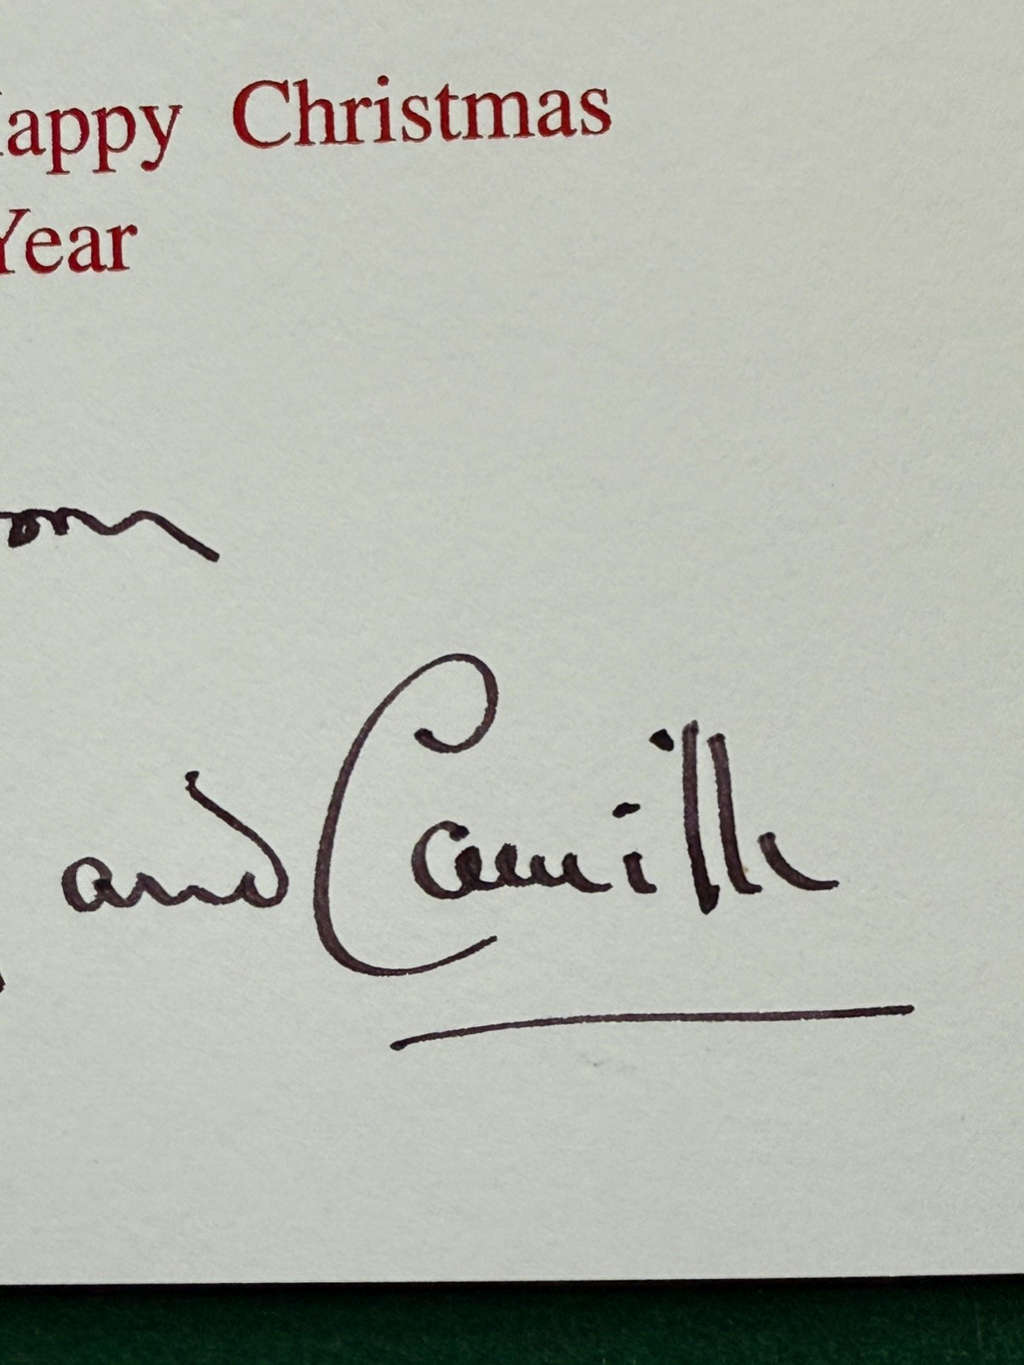 Happy Christmas
Year
from
and Camilla